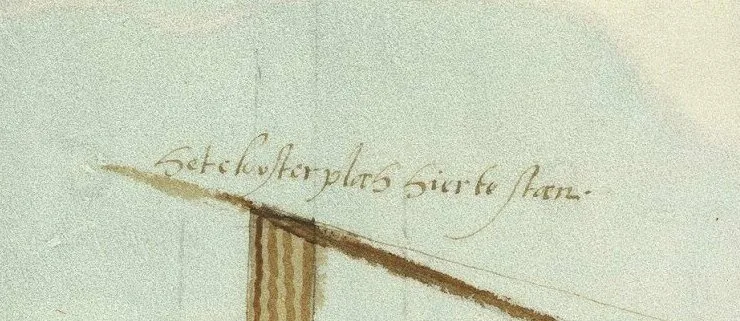 het clooster plach hier te staen.